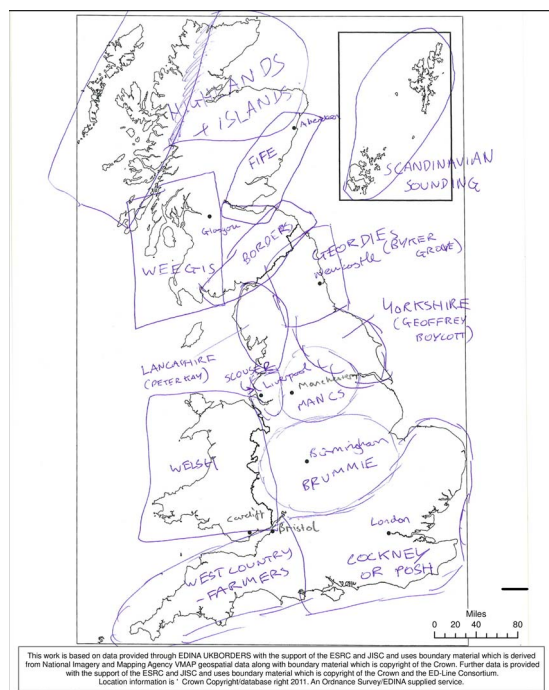 HIGHLANDS
+ ISLANDS
Aberdeen
FIFE
SCANDINAVIAN
SOUNDING
Glasgow
WEEGIS
BORDERS
GEORDIES (BYKER
GROVE)
Newcastle
YORKSHIRE
(GEOFFREY
BOYCOTT)
LANCASHIRE
(PETER KAY)
SCOUSE
Liverpool
Manchester
MANCS
Birmingham
BRUMMIE
WELSH
Cardiff
Bristol
London
WEST COUNTRY
FARMERS
COCKNEY
OR POSH
Miles
0 20 40 80
This work is based on data provided through EDINA UKBORDERS with the support of the ESRC and JISC and uses boundary material which is derived
from National Imagery and Mapping Agency VMAP geospatial data along with boundary material which is copyright of the Crown. Further data is provided
with the support of the ESRC and JISC and uses boundary material which is copyright of the Crown and the ED-Line Consortium.
Location information is ' Crown Copyright/database right 2011. An Ordnance Survey/EDINA supplied service.